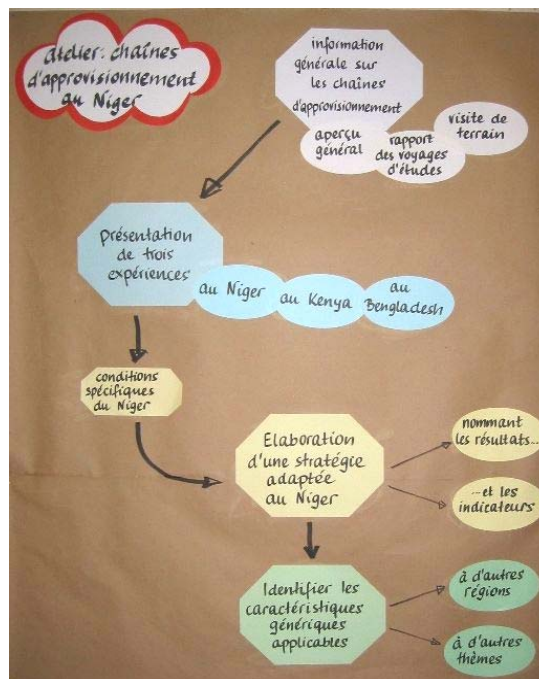 atelier: chaînes
d'approvisionnement
au Niger
information
générale sur
les chaînes
d'approvisionnement
aperçu
général
rapport
des voyages
d'études
visite de
terrain
présentation
de trois
expériences
au Niger
au Kenya
au
Bengladesh
conditions
spécifiques
du Niger
Elaboration
d'une stratégie
adaptée
au Niger
nommant
les résultats...
...et les
indicateurs
Identifier les
caractéristiques
génériques
applicables
à d'autres
régions
à d'autres
thèmes